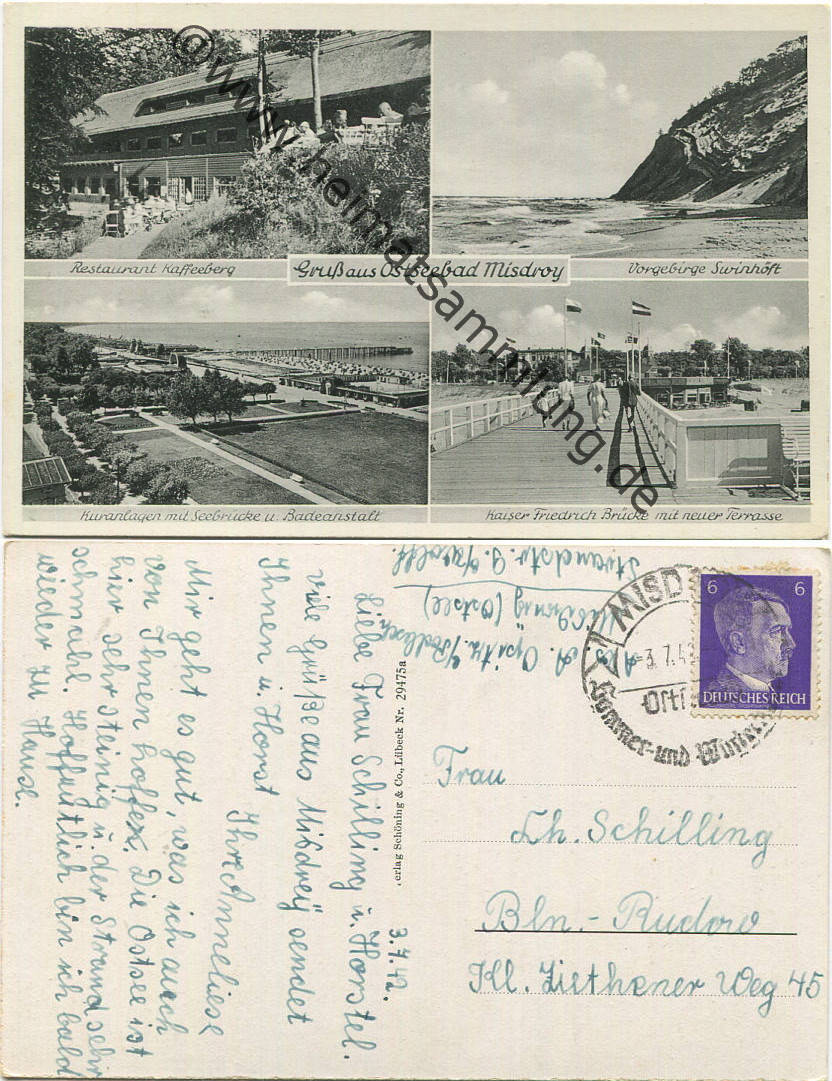 Restaurant Kaffeeberg
Gruß aus Ostseebad Misdroy
Vorgebirge Swinhöft
Kuranlagen mit Seebrücke u. Badeanstalt
Kaiser Friedrich Brücke mit neuer Terrasse
© www.heimatsammlung.de
3.7.42.
Liebe Frau Schilling u. Horstel.
viele Grüße aus Misdroy sendet
Ihnen u. Horst
Ihre Anneliese
Mir geht es gut, was ich auch
von Ihnen hoffe. Die Ostsee ist
hier sehr steinig u. der Strand sehr
schmahl. Hoffentlich bin ich bald
wieder zu Hause.
Verlag Schöning & Co., Lübeck Nr. 29475a
Abs. A. Opitz
Misdroy (Ostsee)
Strandstr. 9.
MISD
3.7.4
Ost
Sommer- und Winter
6 6
DEUTSCHES REICH
Frau
Ch. Schilling
Bln.- Rudow
Kl. Ziethener Weg 45